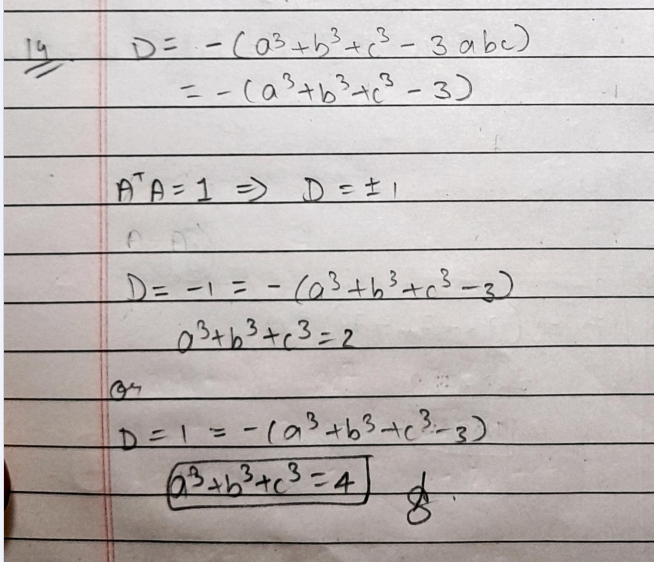 14 D = -(a³+b³+c³ - 3abc)
= -(a³+b³+c³ - 3)
AᵀA = 1 ⇒ D = ±1
D = -1 = -(a³+b³+c³-3)
a³+b³+c³ = 2
or
D = 1 = -(a³+b³+c³-3)
a³+b³+c³ = 4